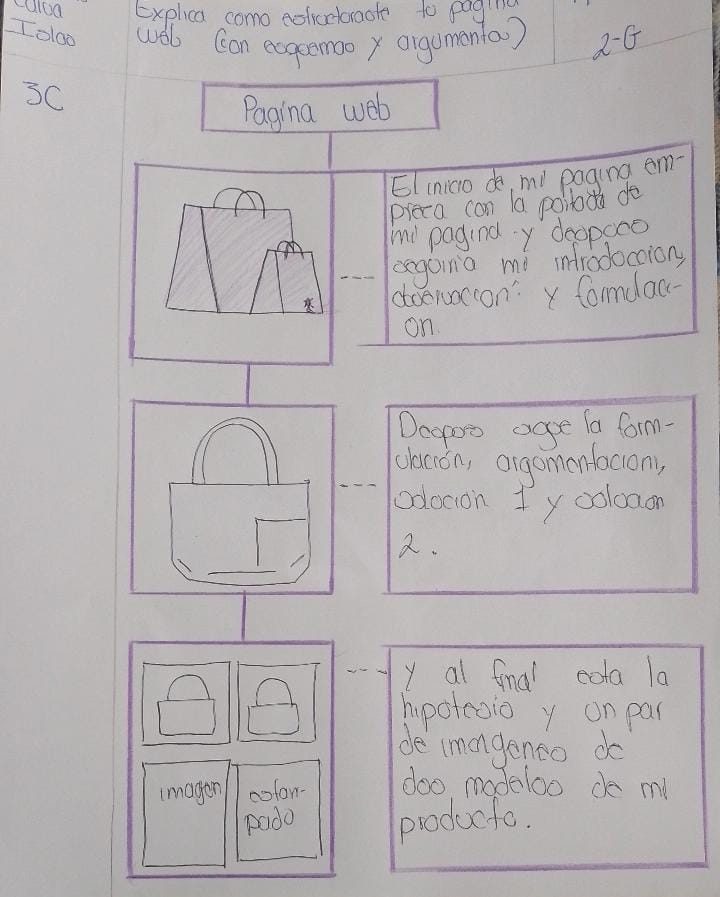 Explica como estructuraste tu pagina
Islas
web (con esquemas y argumenta)
2-G
3C
Pagina web
El inicio de mi pagina em-
pieza con la portada de
mi pagina y despues
seguiria mi introduccion,
observacion y formulaci-
on.
Despues sigue la form-
ulación, argomentacion,
solocion 1 y solocion
2.
imagen
estam-
pado
y al final esta la
hipotesis y un par
de imagenes de
dos modelos de mi
producto.